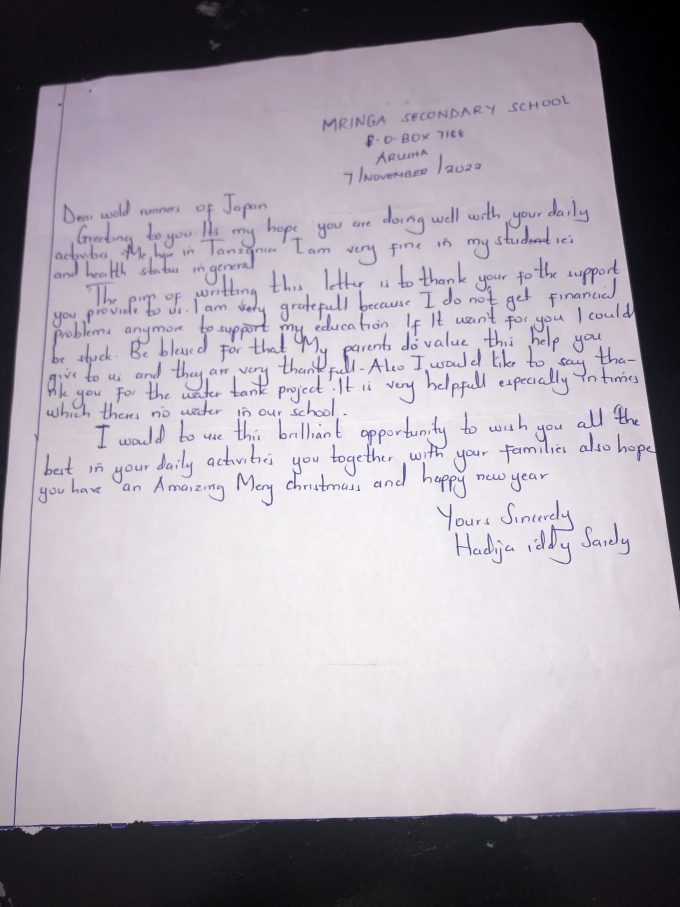 MRINGA SECONDARY SCHOOL
P.O.BOX 7188
ARUSHA
7/NOVEMBER/2022
Dear wold runners of Japan
Greeting to you. Its my hope you are doing well with your daily
activities. Me her in Tanzania I am very fine in my studies
and health status in general
The pim of writting this letter is to thank your fo the support
you provide to us. I am very gratefull because I do not get financial
problems anymore to support my education If It want for you I could
be stuck. Be blessed for that My parents do value this help you
give to us and they are very thankfull. Also I would like to say tha-
nk you for the water tank project. It is very helpfull especially in times
which theres no water in our school.
I would to use this brilliant opportunity to wish you all the
best in your daily activities you together with your families also hope
you have an Amaizing Mery christmass and happy new year
Yours Sincerely
Hadija iddy Saidy